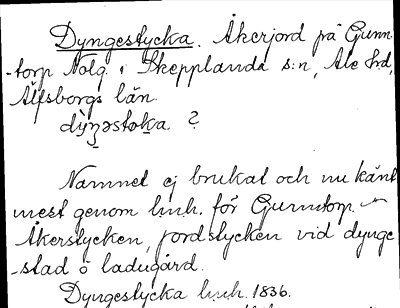 Dyngestycka. Åkerjord på Gunn-
-torp Nolg. i Skepplanda s:n, Ale hd,
Älfsborgs län.
dy̌ŋəstəka ?
Namnet ej brukat och nu känt
mest genom lmh. för Gunntorp.
Åkerstycken, jordstycken vid dynge
-stad o ladugård.
Dyngestycka lmh. 1836.